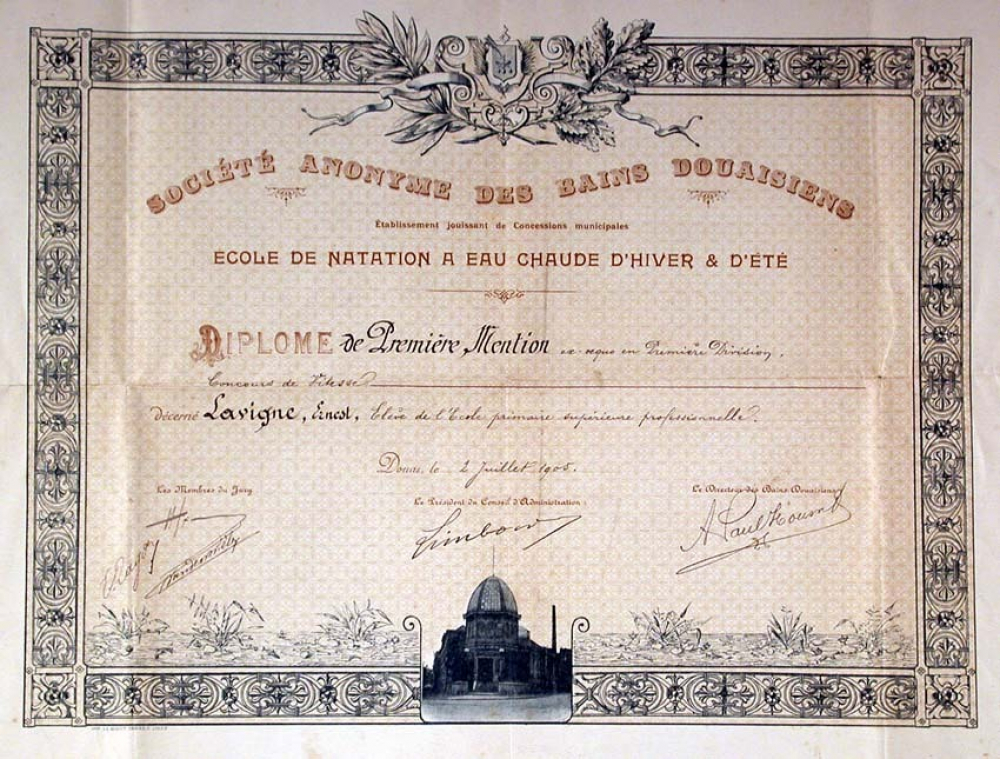 SOCIÉTÉ ANONYME DES BAINS DOUAISIENS
Établissement jouissant de Concessions municipales
ECOLE DE NATATION A EAU CHAUDE D'HIVER & D'ÉTÉ
DIPLOME de Première Mention ex-æquo en Première Division,
Concours de Vitesse
Décerné Lavigne, Ernest, Elève de l'Ecole primaire supérieure professionnelle.
Douai, le 2 Juillet 1905.
Les Membres du Jury
Le Président du Conseil d'Administration :
Le Directeur des Bains Douaisiens
A Paul